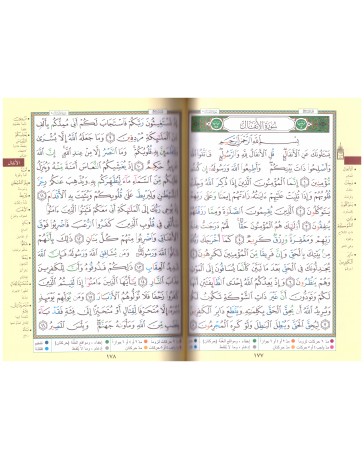 سُورَةُ الأَنفَال
بِسْمِ اللَّهِ الرَّحْمَٰنِ الرَّحِيمِ
يَسْـَٔلُونَكَ عَنِ الْأَنفَالِ قُلِ الْأَنفَالُ لِلَّهِ وَالرَّسُولِ فَاتَّقُوا اللَّهَ
وَأَصْلِحُوا ذَاتَ بَيْنِكُمْ وَأَطِيعُوا اللَّهَ وَرَسُولَهُ إِن كُنتُم
مُّؤْمِنِينَ ١ إِنَّمَا الْمُؤْمِنُونَ الَّذِينَ إِذَا ذُكِرَ اللَّهُ وَجِلَتْ
قُلُوبُهُمْ وَإِذَا تُلِيَتْ عَلَيْهِمْ ءَايَٰتُهُ زَادَتْهُمْ إِيمَٰنًا وَعَلَىٰ رَبِّهِمْ
يَتَوَكَّلُونَ ٢ الَّذِينَ يُقِيمُونَ الصَّلَوٰةَ وَمِمَّا رَزَقْنَٰهُمْ
يُنفِقُونَ ٣ أُولَٰئِكَ هُمُ الْمُؤْمِنُونَ حَقًّا لَّهُمْ دَرَجَٰتٌ عِندَ
رَبِّهِمْ وَمَغْفِرَةٌ وَرِزْقٌ كَرِيمٌ ٤ كَمَا أَخْرَجَكَ رَبُّكَ
مِن بَيْتِكَ بِالْحَقِّ وَإِنَّ فَرِيقًا مِّنَ الْمُؤْمِنِينَ لَكَٰرِهُونَ ٥
يُجَٰدِلُونَكَ فِي الْحَقِّ بَعْدَمَا تَبَيَّنَ كَأَنَّمَا يُسَاقُونَ إِلَى الْمَوْتِ
وَهُمْ يَنظُرُونَ ٦ وَإِذْ يَعِدُكُمُ اللَّهُ إِحْدَى الطَّائِفَتَيْنِ أَنَّهَا
لَكُمْ وَتَوَدُّونَ أَنَّ غَيْرَ ذَاتِ الشَّوْكَةِ تَكُونُ لَكُمْ
وَيُرِيدُ اللَّهُ أَن يُحِقَّ الْحَقَّ بِكَلِمَٰتِهِ وَيَقْطَعَ دَابِرَ الْكَٰفِرِينَ ٧
لِيُحِقَّ الْحَقَّ وَيُبْطِلَ الْبَٰطِلَ وَلَوْ كَرِهَ الْمُجْرِمُونَ ٨
١٧٧
إِذْ تَسْتَغِيثُونَ رَبَّكُمْ فَاسْتَجَابَ لَكُمْ أَنِّي مُمِدُّكُم بِأَلْفٍ
مِّنَ الْمَلَٰئِكَةِ مُرْدِفِينَ ٩ وَمَا جَعَلَهُ اللَّهُ إِلَّا بُشْرَىٰ
وَلِتَطْمَئِنَّ بِهِ قُلُوبُكُمْ وَمَا النَّصْرُ إِلَّا مِنْ عِندِ اللَّهِ إِنَّ اللَّهَ
عَزِيزٌ حَكِيمٌ ١٠ إِذْ يُغَشِّيكُمُ النُّعَاسَ أَمَنَةً مِّنْهُ وَيُنَزِّلُ
عَلَيْكُم مِّنَ السَّمَاءِ مَاءً لِّيُطَهِّرَكُم بِهِ وَيُذْهِبَ عَنكُمْ رِجْزَ
الشَّيْطَٰنِ وَلِيَرْبِطَ عَلَىٰ قُلُوبِكُمْ وَيُثَبِّتَ بِهِ الْأَقْدَامَ ١١
إِذْ يُوحِي رَبُّكَ إِلَى الْمَلَٰئِكَةِ أَنِّي مَعَكُمْ فَثَبِّتُوا الَّذِينَ ءَامَنُوا
سَأُلْقِي فِي قُلُوبِ الَّذِينَ كَفَرُوا الرُّعْبَ فَاضْرِبُوا فَوْقَ
الْأَعْنَاقِ وَاضْرِبُوا مِنْهُمْ كُلَّ بَنَانٍ ١٢ ذَٰلِكَ بِأَنَّهُمْ
شَاقُّوا اللَّهَ وَرَسُولَهُ وَمَن يُشَاقِقِ اللَّهَ وَرَسُولَهُ فَإِنَّ اللَّهَ
شَدِيدُ الْعِقَابِ ١٣ ذَٰلِكُمْ فَذُوقُوهُ وَأَنَّ لِلْكَٰفِرِينَ
عَذَابَ النَّارِ ١٤ يَٰأَيُّهَا الَّذِينَ ءَامَنُوا إِذَا لَقِيتُمُ الَّذِينَ
كَفَرُوا زَحْفًا فَلَا تُوَلُّوهُمُ الْأَدْبَارَ ١٥ وَمَن يُوَلِّهِمْ يَوْمَئِذٍ
دُبُرَهُ إِلَّا مُتَحَرِّفًا لِّقِتَالٍ أَوْ مُتَحَيِّزًا إِلَىٰ فِئَةٍ فَقَدْ بَاءَ
بِغَضَبٍ مِّنَ اللَّهِ وَمَأْوَىٰهُ جَهَنَّمُ وَبِئْسَ الْمَصِيرُ ١٦
١٧٨